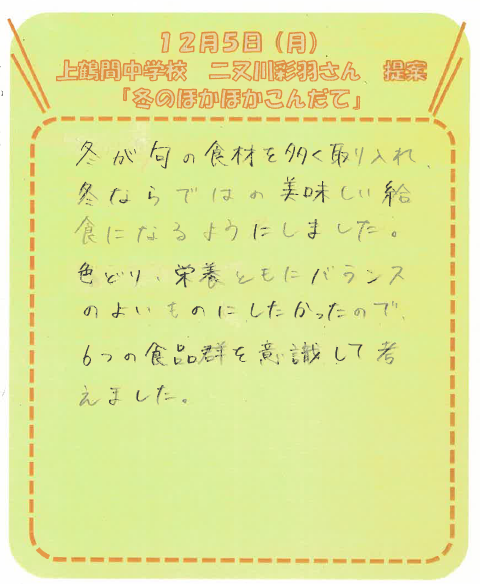 12月5日（月）
上鶴間中学校　二又川彩羽さん　提案
「冬のほかほかこんだて」
冬が旬の食材を多く取り入れ、
冬ならではの美味しい給
食になるようにしました。
色どり、栄養ともにバランス
のよいものにしたかったので、
6つの食品群を意識して考
えました。